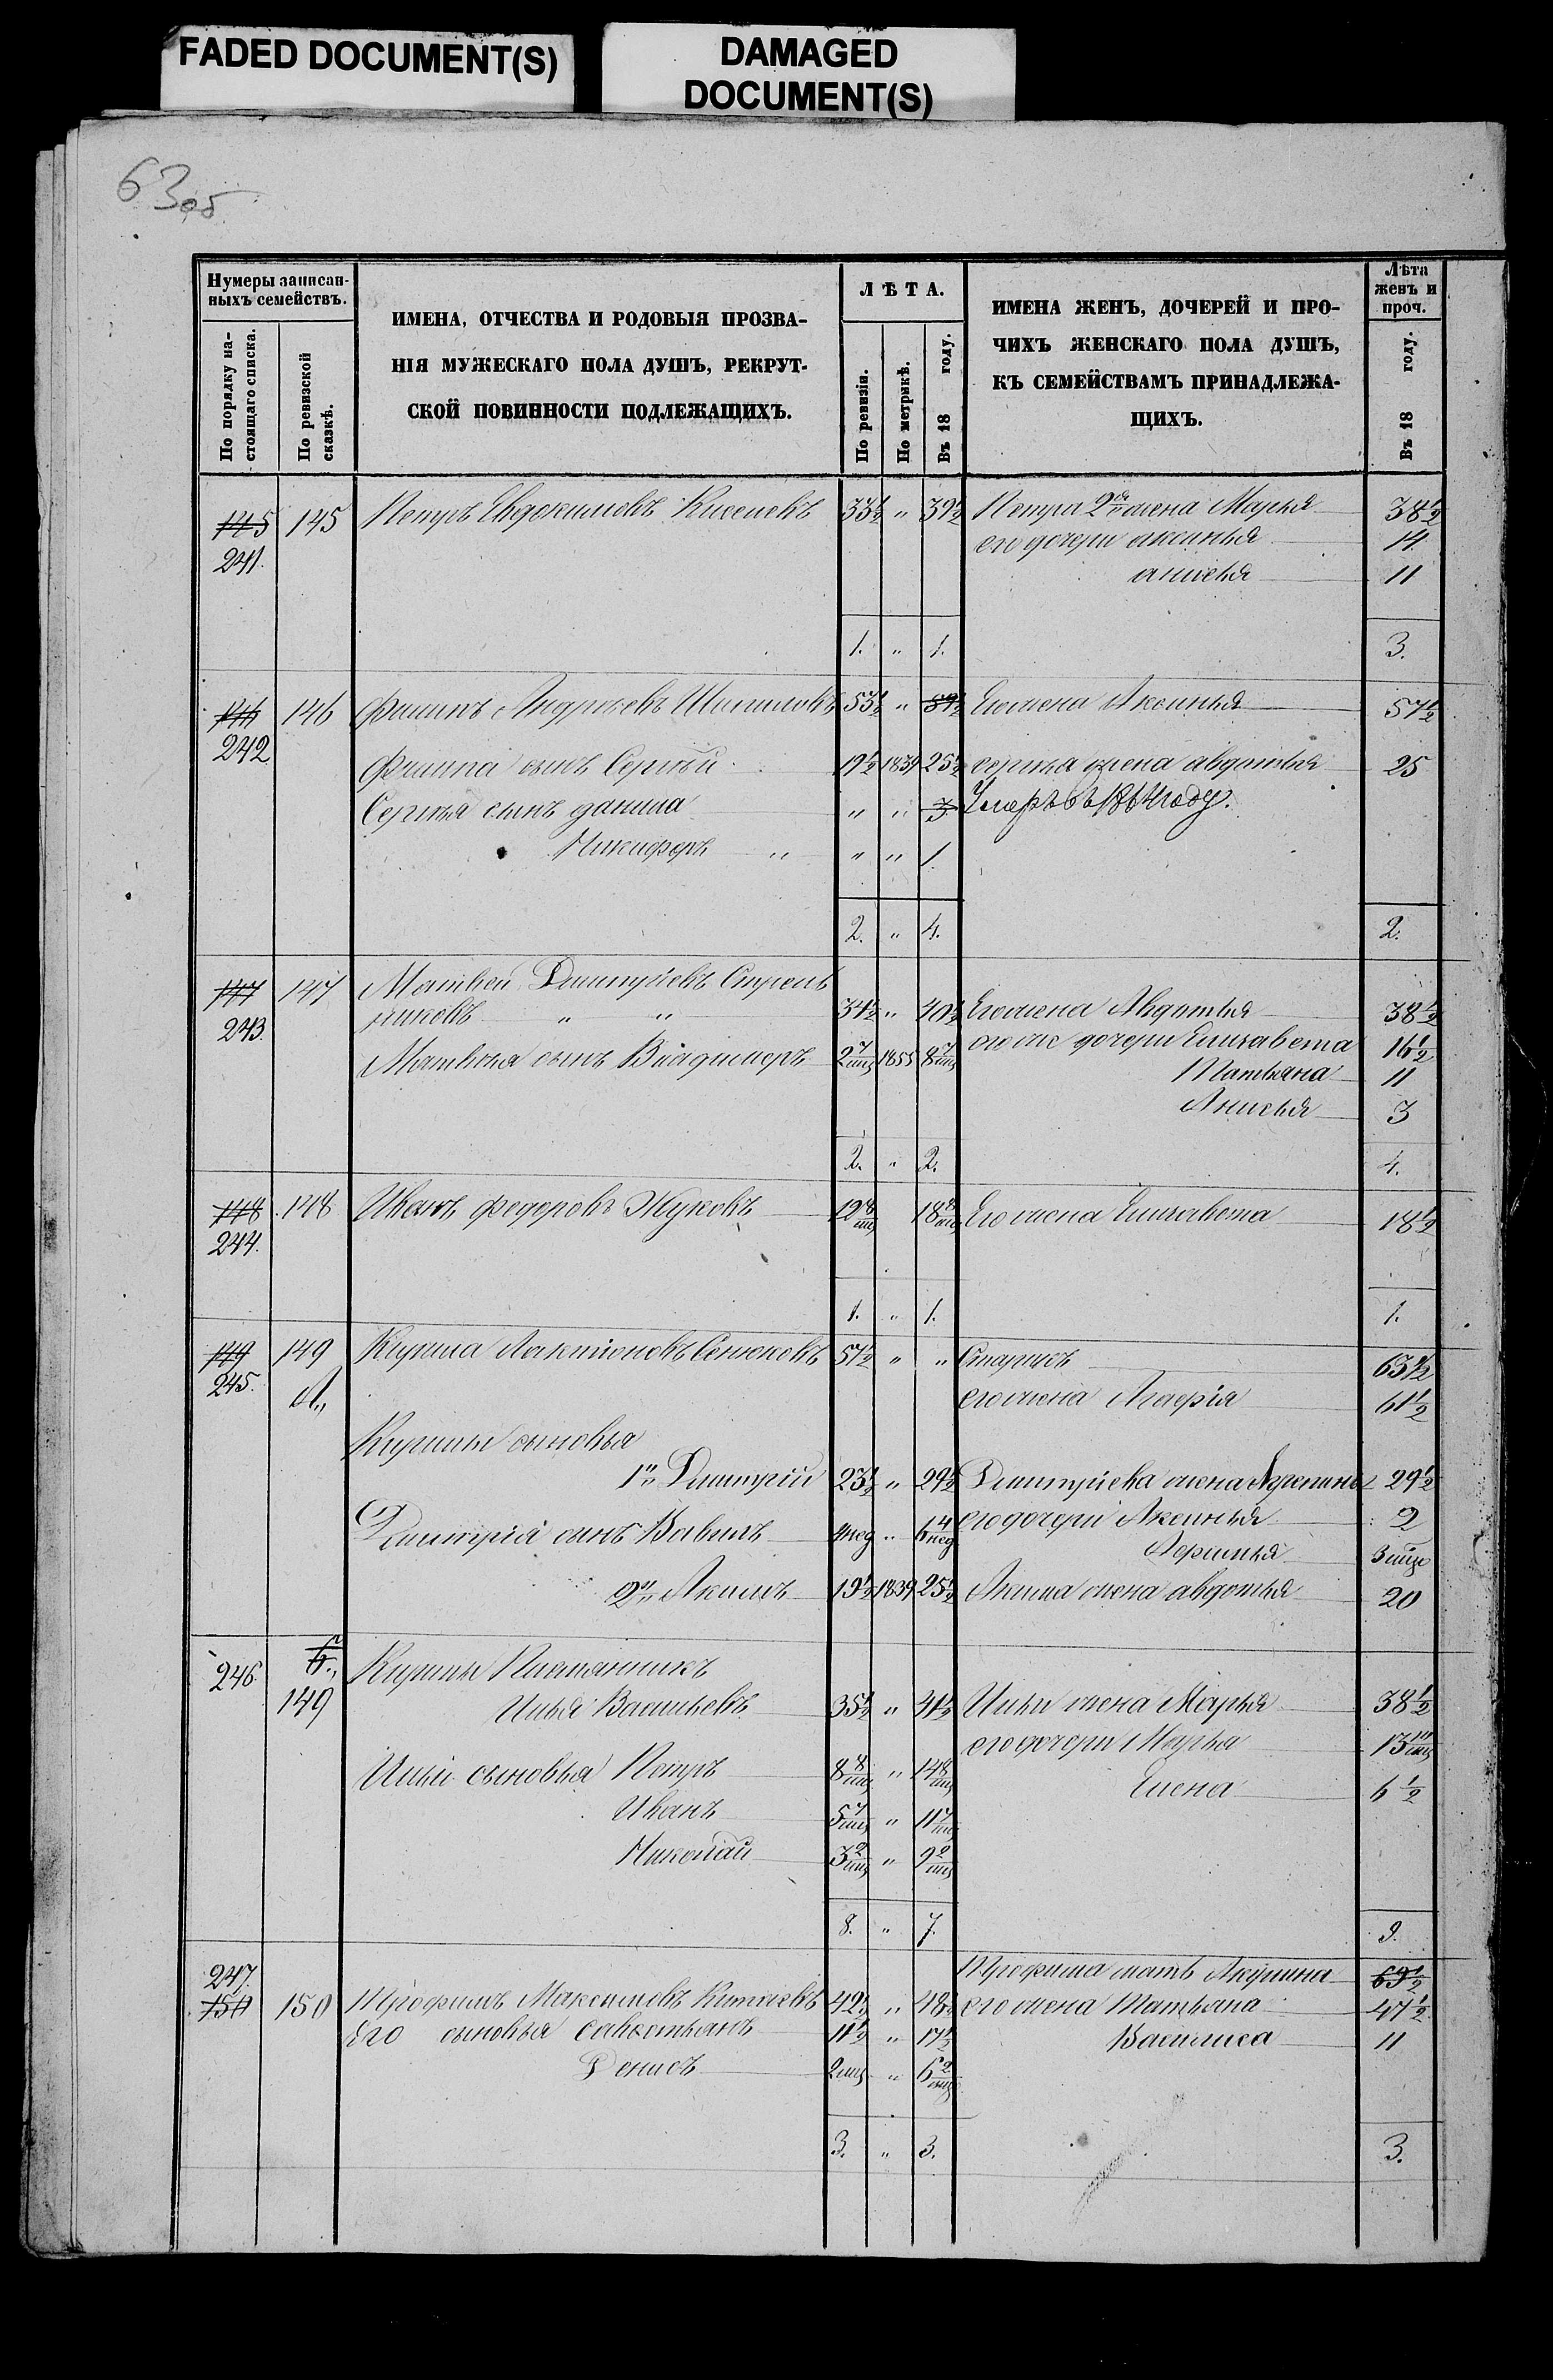 FADED DOCUMENT(S)
DAMAGED
DOCUMENT(S)
63об
Нумеры записан-
ныхъ семействъ.
По порядку на-
стоящаго списка.
По ревизской
сказкѣ.
ИМЕНА, ОТЧЕСТВА И РОДОВЫЯ ПРОЗВА-
НІЯ МУЖЕСКАГО ПОЛА ДУШЪ, РЕКРУТ-
СКОЙ ПОВИННОСТИ ПОДЛЕЖАЩИХЪ.
ЛѢТА.
По ревизіи.
По метрикѣ.
Въ 18 году.
ИМЕНА ЖЕНЪ, ДОЧЕРЕЙ И ПРО-
ЧИХЪ ЖЕНСКАГО ПОЛА ДУШЪ,
КЪ СЕМЕЙСТВАМЪ ПРИНАДЛЕЖА-
ЩИХЪ.
Лѣта
женъ и
проч.
Въ 18 году.
145 145 Петръ Евдокимовъ Киселевъ 33½ " 39½ Петра 2я жена Марья 38½
241. его дочери аксинья 14
анисья 11
1. " 1. 3.
146 146 Филипъ Андреевъ Шипиловъ 53½ " 59½ Его жена Аксинья 57½
242 Филипа сынъ Сергѣй 19½ 1839 25½ сергѣя жена авдотья 25
Сергѣя сынъ данила " " 3 Умеръ въ 1864 году.
Никифоръ " " " 1.
2. " 4. 2.
147 147 Матвей Дмитріевъ Стрель
243. никовъ " " 34½ " 40½ Его жена Авдотья 38½
Матвѣя сынъ Владимеръ 2 7/мц 1855 8 7/мц его же дочери Елизавета 16½
Татьяна 11
Анисья 3
2. " 2. 4.
148 148 Иванъ Федоровъ Жуковъ 12 8/мц 18 8/мц Его жена Елизавета 18½
244.
1. " 1. 1.
149 149 Кирила Лактіоновъ Сенюковъ 57½ " " Старикъ 63½
245. А., его жена Агафія 61½
Кирилы сыновья
1й Дмитрій 23½ " 29½ Дмитріева жена Агрепина 29½
Дмитрія сынъ Вавилъ 4нед " 6 4/нед его дочери Аксинья 2
3 мцо
2й Акимъ 19½ 1839 25½ Акима жена авдотья 20
246. Б., Кирилы Племянникъ
149 Илья Васильевъ 35½ " 41½ Ильи жена Марья 38½
его дочери Марья 13
Ильи сыновья Петръ 8 8/мц " 14 8/мц Елена 6½
Иванъ 5 7/мц " 11 7/мц
Николай 3 2/мц " 9 2/мц
8. " 7. 9.
247. Трофима мать Акулина 69½
150 150 Трофимъ Максимовъ Китаевъ 42½ " 48½ его жена Татьяна 47½
Его сыновья Савостьянъ 11½ " 17½ Василиса 11
Денисъ 2мц " 6 2/мц
3. " 3. 3.